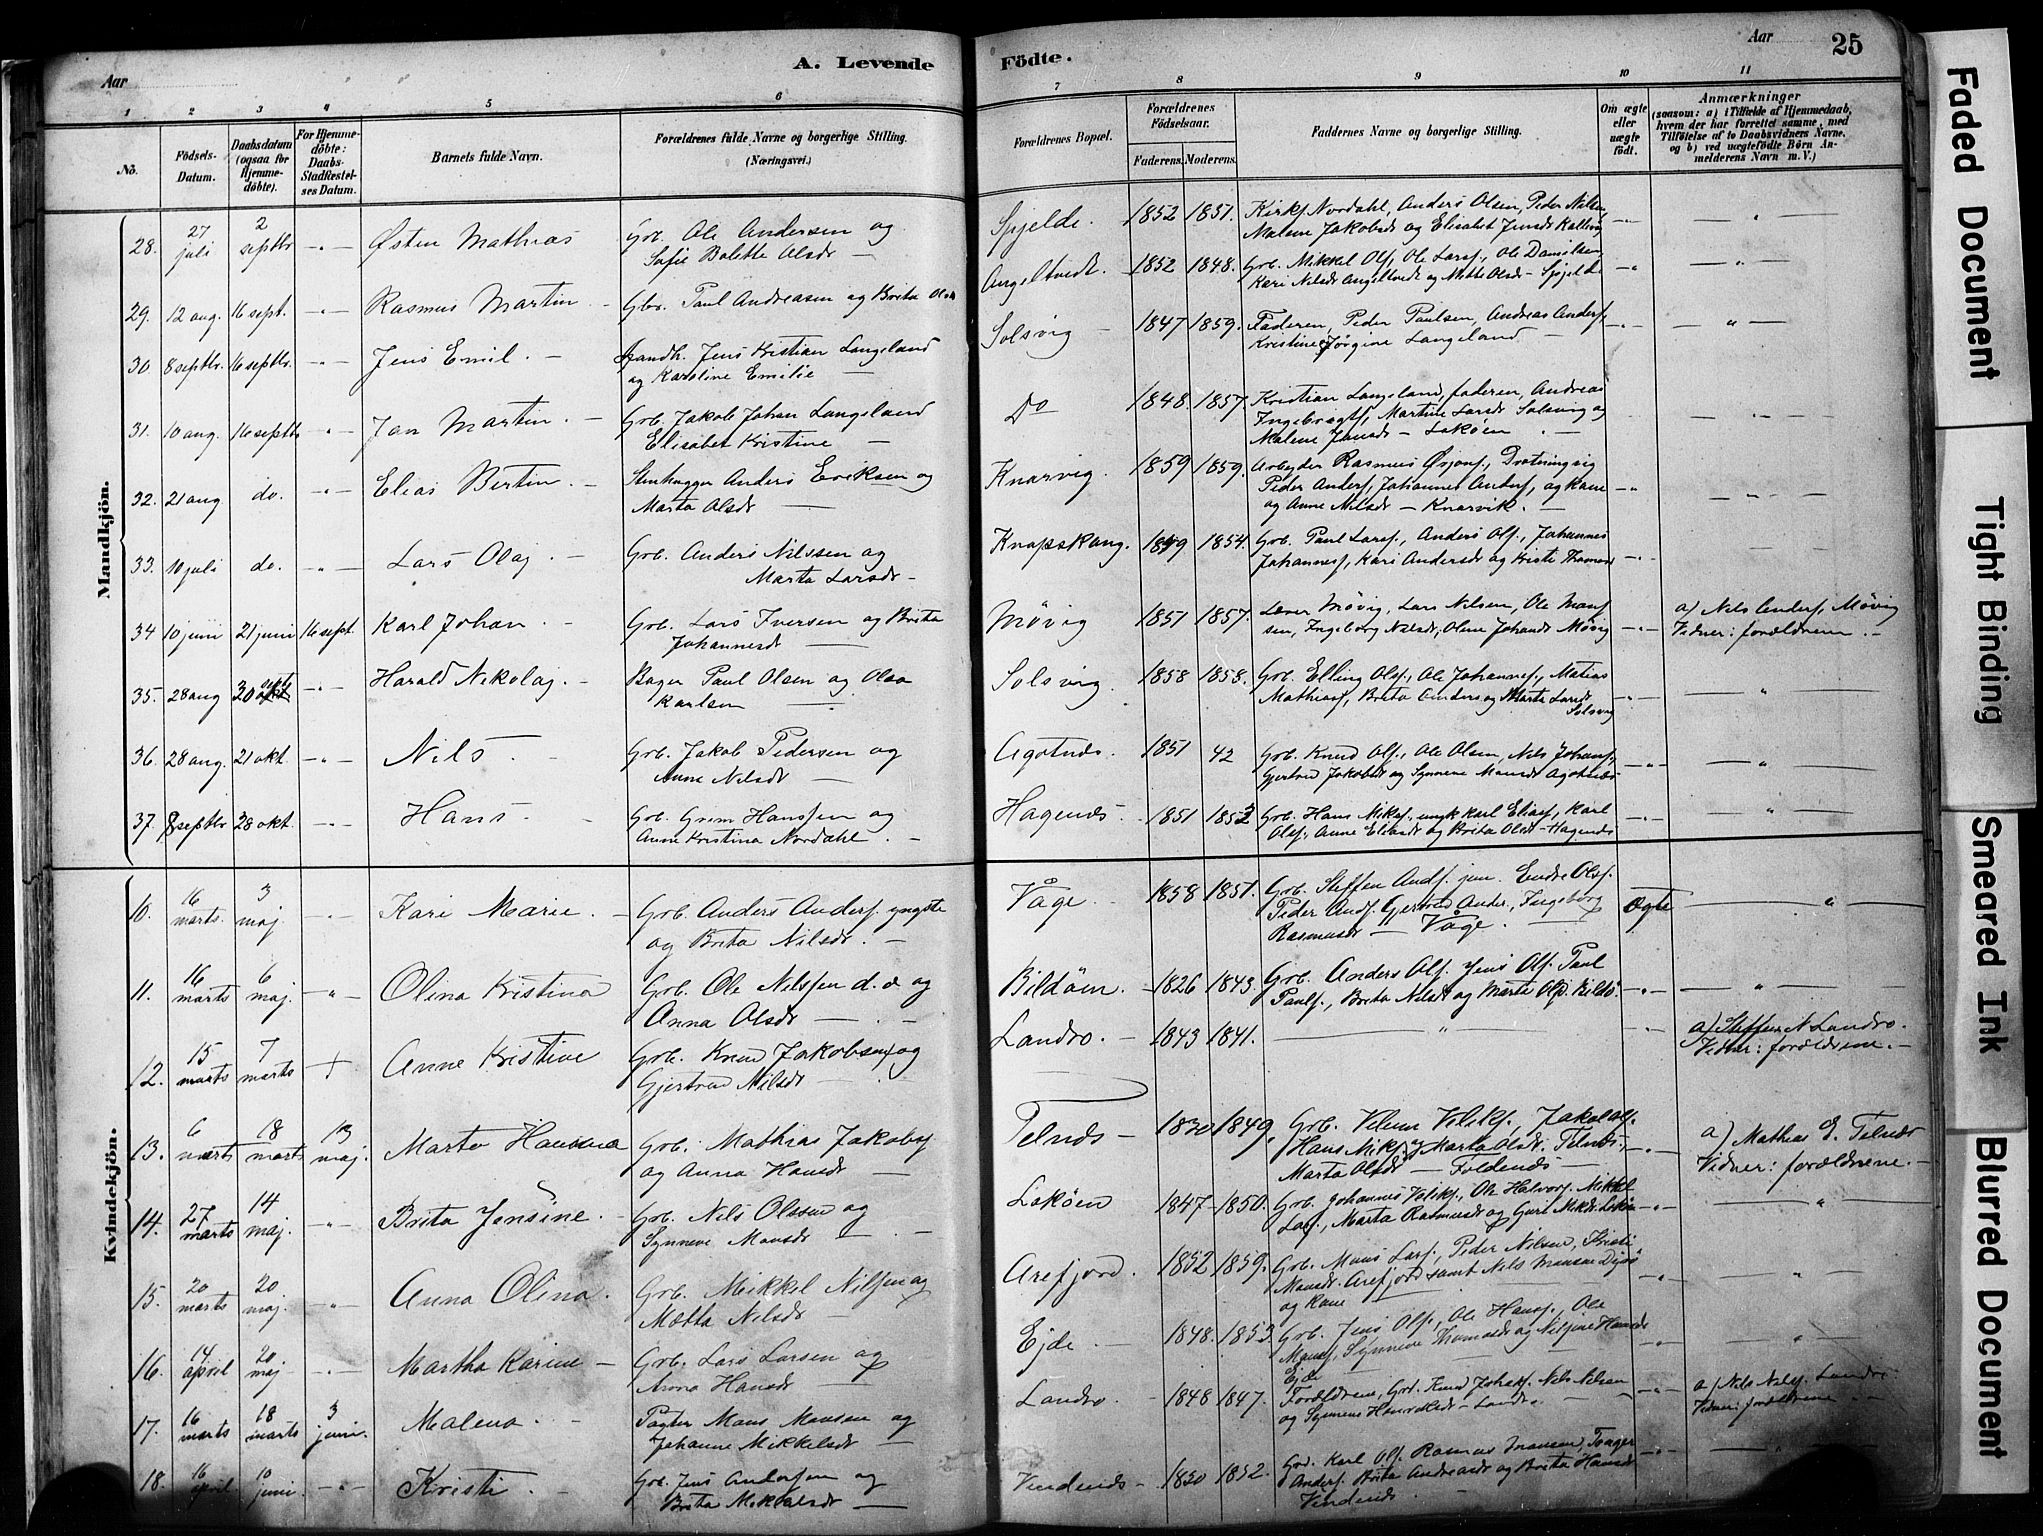 Aar
A. Levende
Födte.
Aar
25
1 2 3 4 5 6 7 8 9 10 11
No.
Födsels-
Datum.
Daabsdatum
(ogsaa for
Hjemme-
döbte).
For Hjemme-
döbte:
Daabs-
Stadfæstel-
ses Datum.
Barnets fulde Navn.
Forældrenes fulde Navne og borgerlige Stilling.
(Næringsvei.)
Forældrenes Bopæl.
Forældrenes
Födselsaar.
Faderens. Moderens.
Faddernes Navne og borgerlige Stilling.
Om ægte
eller
uægte
födt.
Anmærkninger
(saasom: a) i Tilfælde af Hjemmedaab,
hvem der har forrettet samme, med
Tilföielse af to Daabsvidners Navne,
og b) ved uægtefödte Börn An-
melderens Navn m. V.)
Mandkjön.
28. 27 juli 2 septbr Østen Mathias Grb. Ole Andersen og
Sofie Bolette Olsdr
Spjelde. 1852 1851. Kirks. Nordahl, Anders Olsen, Peder Nilsen
Malene Jakobsdr og Elisabet Jensdr
29. 12 aug. 16 sept. Rasmus Martin Gbr. Paul Andreasen og Brita Olsdr
Angeltvedt. 1852 1848. Grb. Mikkel Ols., Ole Larss., Ole Danielsen,
Kari Nilsdr Angeltvedt og Mette Olsdr - Spjelde
30 8 septbr. 16 septbr. Jens Emil. Handh. Jens Kristian Langeland
og Karoline Emilie
Solsvig 1847 1859. Faderen, Peder Paulsen, Andreas Anders,
Kristine & Jørgine Langeland
31. 10 aug. 16 septbr Jan Martin. Grb. Jakob Johan Langeland
Elisabet Kristine
Do 1848. 1857. Kristian Langeland, faderen, Andreas
Ingebregts, Martine Larsdr Solsvig og
Malene Jansdr - Lokøen
32. 21 aug do. Elias Bertin. Stenhugger Anders Eriksen og
Marta Olsdr
Knarvig. 1859 1859. Arbeyder Rasmus Ørjans., Drotningvig
Peder Anders, Johannes Anders, og kone
og Anne Nilsdr - Knarvik.
33. 10 juli do. Lars Olaj Grb. Anders Nilssen og
Marta Larsdr
Knapskaug. 1849 1854. Grb. Paul Larss., Anders Ols., Johannes
Johanness, Kari Andersdr og Kristi Thomasdr
34 10 juni 21 juni 16 sept. Karl Johan Grb. Lars Iversen og Brita
Johannesdr
Møvig 1851 1857. Lærer Møvig, Lars Nilsen, Ole Mons
sen, Ingeborg Nilsdr, Oline Johansdr Møvig
a) Nils Anders, Møvig
Vidner: forældrene.
35. 28 aug 30 septbr Harald Nikolaj. Bager Paul Olsen og Olea
Karlsen
Solsvig. 1858 1858. Grb. Elling Ols., Ole Johannes., Matias
Mathias, Brita Anders og Marta Larsdr
Solsvig
36. 28 aug. 21 okt. Nils. Grb. Jakob Pedersen og
Anne Nilsdr
Agotnes. 1851 42 Grb. Knud Ols., Ole Olsen, Nils Johans,
Gjertrud Jakobsdr og Synneve Monsdr Agotnes
37. 8 septbr 28 okt. Hans. Grb. Grim Hanssen og
Anne Kristina Nordahl.
Hagenæs. 1851 1853 Grb. Hans Mikels. ungk Karl Elias, Karl
Ols., Anne Eliasdr og Brita Olsdr - Hagenæs
Kvindekjön.
10. 16 marts. 3 maj. Kari Marie. Grb. Anders Anders. yngste
og Brita Nilsdr.
Våge. 1858 1851. Grb. Steffen Ands. jun. Endre Ols.
Peder Ands. Gjertrud Anders., Ingeborg
Rasmusdr - Våge.
Ægte
11. 16 marts 6 maj. Olina Kristina Grb. Ole Nilssen d. æ og
Anna Olsdr
Bildøen. 1826 1843. Grb. Anders Ols. Jens Ols. Paul
Pauls., Brita Nilsdr og Marta Ols. Bildø.
12. 15 marts 7 marts + Anne Kristine Grb. Knud Jakobsen og
Gjertrud Nilsdr
Landro. 1843 1841.
a) Steffen N Landro.
Vidner: forældrene.
13. 6 marts 18 marts 13 maj. Marta Hansina Grb. Mathias Jakobs.
og Anna Hansdr
Telnæs 1830 1849. Grb. Vilum Veliks, Jakob Ols.
Hans Miks, Marta Olsdr. Telnæs,
Marta Olsdr - Foldenæs
a) Mathias E. Telnæs
Vidner: forældrene.
14. 27 marts 14 maj. Brita Jensine. Grb. Nils Olssen og
Synneve Monsdr
Lokøen 1847 1850. Grb. Johannes Veliks., Ole Halvors. Mikkel
Lars, Marta Rasmusdr og Guri Miksdr Lokøen
15. 20 marts 20 maj. Anna Olina. Grb. Mikkel Nilssen og
Mætta Nilsdr
Arefjord. 1852 1859. Grb. Mons Lars, Peder Nilsen, Kristi
Monsdr. Arefjord samt Nils Monsen
og kone
16. 14 april 20 maj Martha Karine Grb. Lars Larsen og
Anna Hansdr
Ejde 1848. 1853. Grb. Jens Ols., Ole Hans., Ole
Mons, Synneve Thomasdr og Nilsine Hansdr
Ejde
17. 16 marts 18 marts 3 juni. Malena Pagter Mons Monsen og
Johanne Mikkelsdr
Landro. 1848 1847. Forældrene, Grb. Knud Johs. Nils Nilsen
og Synneve - Landro.
a) Nils Nils. Landro.
Vidner: forældrene
18. 16 april 10 juni. Kristi Grb. Jens Anderssen og
Brita Mikkelsdr
Vindenæs 1830 1852. Grb. Karl Ols. Rasmus Monsen,
Anders. Brita Andreasdr og Brita Hansdr
Vindenæs
Faded Document
Tight Binding
Smeared Ink
Blurred Document